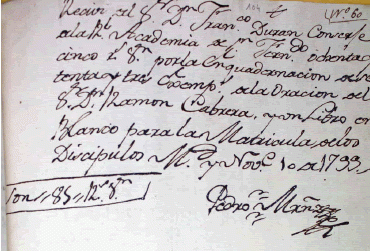 Nº 60
Recivi del Sr. Dn. Franco. Duran Conserje
de la Rl. Academia de Sn. Ferndo. ochenta y
cinco rs. vn. por la Enquadernacion de se
tenta y tres Exemps. de la Oracion del
Sr. Dn. Ramon Cabrera, y un Libro en
Blanco para la Matricula de los
Discipulos M. y Novre. 10 de 1799.
Son 85 rs. vn.
Pedro Mrnz